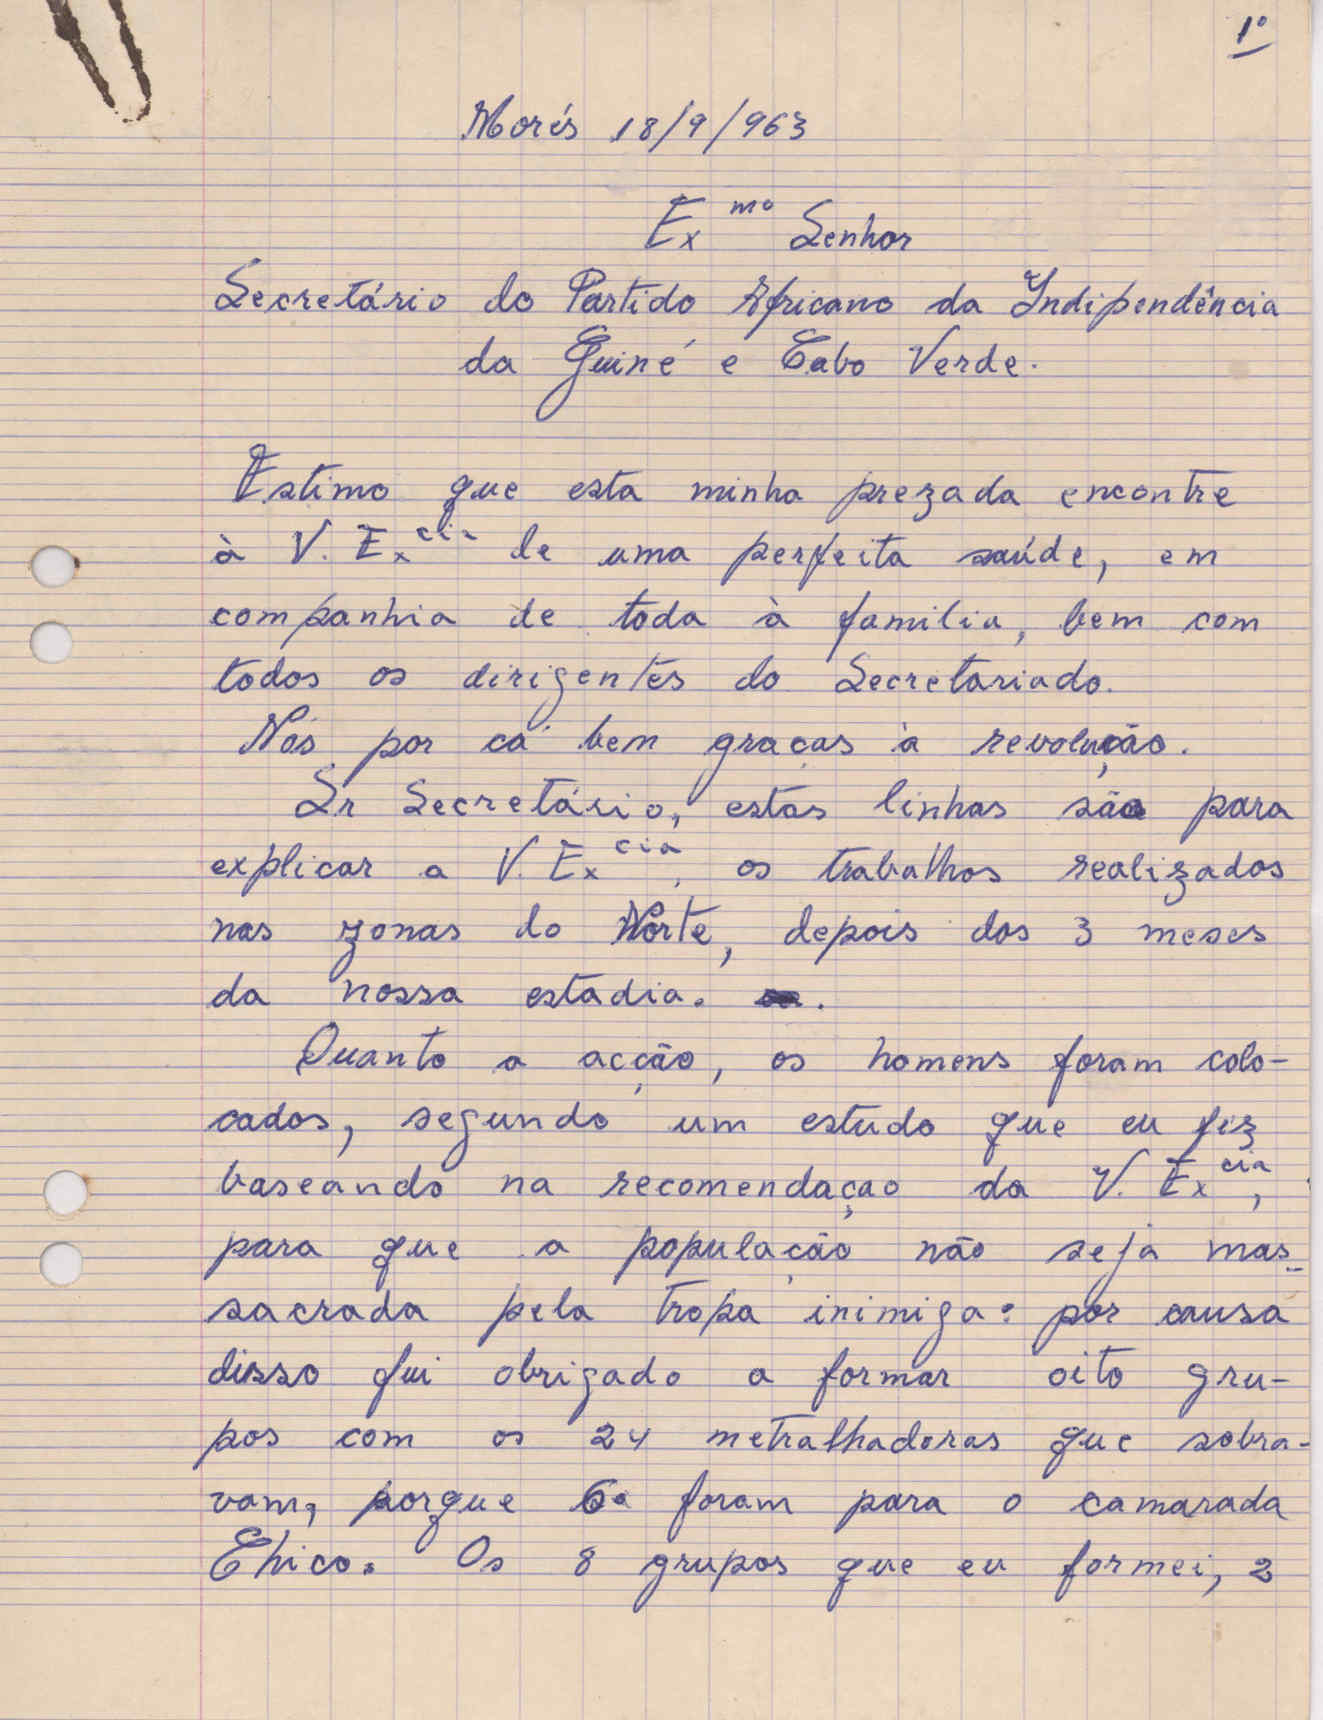 1º
Morés 18/9/963
Exmo Senhor
Secretário do Partido Africano da Indipendência
da Guiné e Cabo Verde.
Estimo que esta minha prezada encontre
à V. Excia de uma perfeita saúde, em
companhia de toda à familia, bem com
todos os dirigentes do Secretariado.
Nós por cá bem graças à revolução.
Sr Secretário, estas linhas são para
explicar a V. Excia, os trabalhos realizados
nas zonas do Norte, depois dos 3 meses
da nossa estadia.
Quanto a acção, os homens foram colo-
cados, segundo um estudo que eu fiz
baseando na recomendaçao da V. Excia,
para que a população não seja mas-
sacrada pela tropa inimiga: por causa
disso fui obrigado a formar oito gru-
pos com os 24 metralhadoras que sobra-
vam, porque 6 foram para o camarada
Chico. Os 8 grupos que eu formei, 2